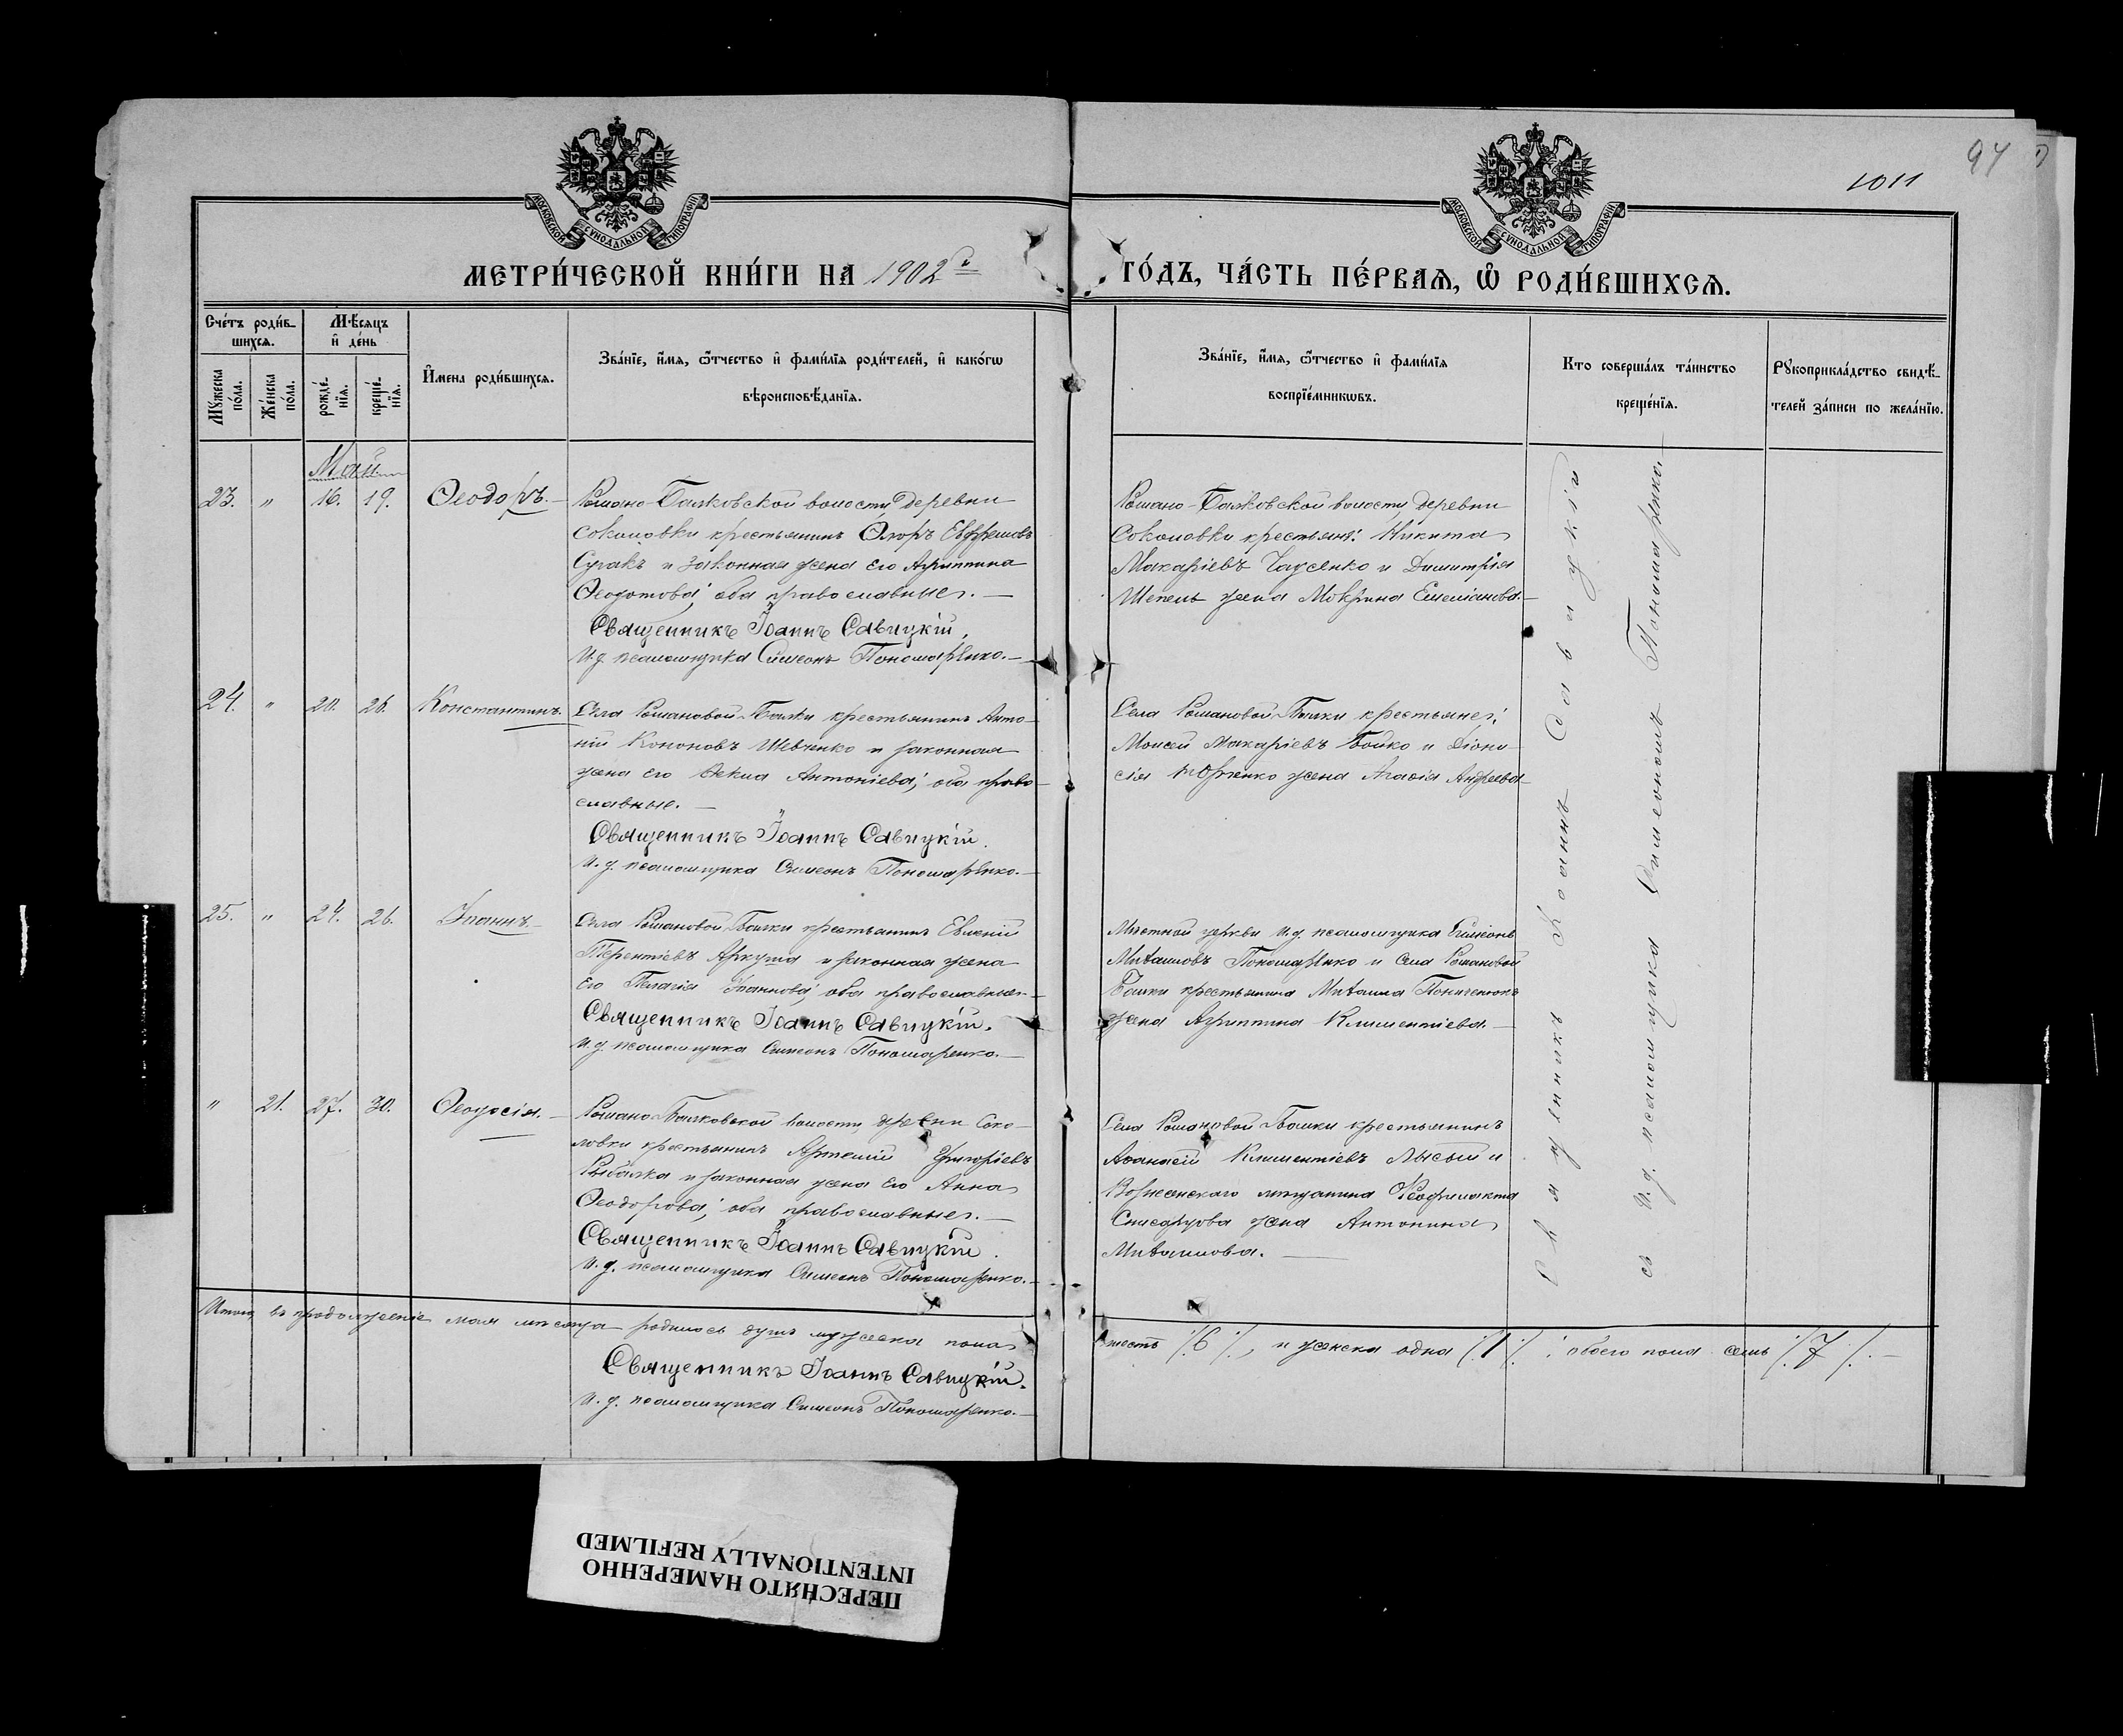 1011
94
МОСКОВСКОЙ СѴНОДАЛЬНОЙ ТИПОГРАФІИ
МОСКОВСКОЙ СѴНОДАЛЬНОЙ ТИПОГРАФІИ
МЕТРИ́ЧЕСКОЙ КНИ́ГИ НА 1902й
ГО́ДЪ, ЧА́СТЬ ПЕ́РВАѦ, Ѽ РОДИ́ВШИХСѦ.
Сче́тъ роди́в-
шихсѧ.
Мѣ́сѧцъ
и҆ де́нь
Мꙋжеска по́ла.
Же́нска по́ла.
рожде́-
нїѧ.
креще́-
нїѧ.
И҆мена роди́вшихсѧ.
Зва́нїе, и҆́мѧ, ѻ҆́тчество и҆ фами́лїѧ роди́телей, и҆ како́гѡ
вѣроисповѣ́данїѧ.
Зва́нїе, и҆́мѧ, ѻ҆́тчество и҆ фами́лїѧ
воспрїе́мникѡвъ.
Кто соверша́лъ та́инство
креще́нїѧ.
Рꙋкоприкла́дство свидѣ́-
телей за́писи по жела́нїю.
Май
23. " 16. 19. Ѳеодоръ.
Романо-Балковской волости, деревни
Соколовки крестьянинъ Ѳлоръ Евфимовъ
Сугакъ и законная жена его Агриппина
Ѳеодотова; оба православные.
Священникъ Іоаннъ Савицкій.
И. д. псаломщика Симеонъ Пономаренко.
Романо-Балковской волости, деревни
Соколовки крестьяне: Никита
Макаріевъ и Димитрія
Шепель жена Мокрина Емеліанова
24. " 20. 26. Константинъ.
Села Романовой-Балки крестьянинъ Анто-
ній Кононовъ Шевченко и законная
жена его Ѳекла Антоніева; оба право-
славные.
Священникъ Іоаннъ Савицкій.
И. д. псаломщика Симеонъ Пономаренко.
Села Романовой-Балки крестьяне:
Моисей Макаріевъ Бойко и Діони-
сія жена Агаѳія Андреева
25. " 24. 26. Іоаннъ.
Села Романовой-Балки крестьянинъ Евменій
Терентіевъ Аркуша и законная жена
его Пелагія Іоаннова; оба православные.
Священникъ Іоаннъ Савицкій.
И. д. псаломщика Симеонъ Пономаренко.
Мѣстной церкви и. д. псаломщика Симеонъ
Михаиловъ Пономаренко и села Романовой
Балки крестьянина Михаила
жена Агриппина Климентіева.
" 21. 27. 30. Ѳеодосія.
Романо-Балковской волости, деревни Соко-
ловки крестьянинъ Артемій Григоріевъ
Рыбалка и законная жена его Анна
Ѳеодорова; оба православные.
Священникъ Іоаннъ Савицкій.
И. д. псаломщика Симеонъ Пономаренко.
Села Романовой-Балки крестьянинъ
Аѳанасій Климентіевъ Лысый и
Вознесенскаго мѣщанина Ѳеофилакта
жена Антонина
Михаилова.
Священникъ Іоаннъ Савицкій
съ и. д. псаломщика Симеономъ Пономаренко.
Итого въ продолженіе мая мѣсяца родилось душъ мужеска пола
шесть /6/, и женска одна /1/; обоего пола семь /7/.
Священникъ Іоаннъ Савицкій.
И. д. псаломщика Симеонъ Пономаренко.
ПЕРЕСНЯТО НАМЕРЕННО
INTENTIONALLY REFILMED